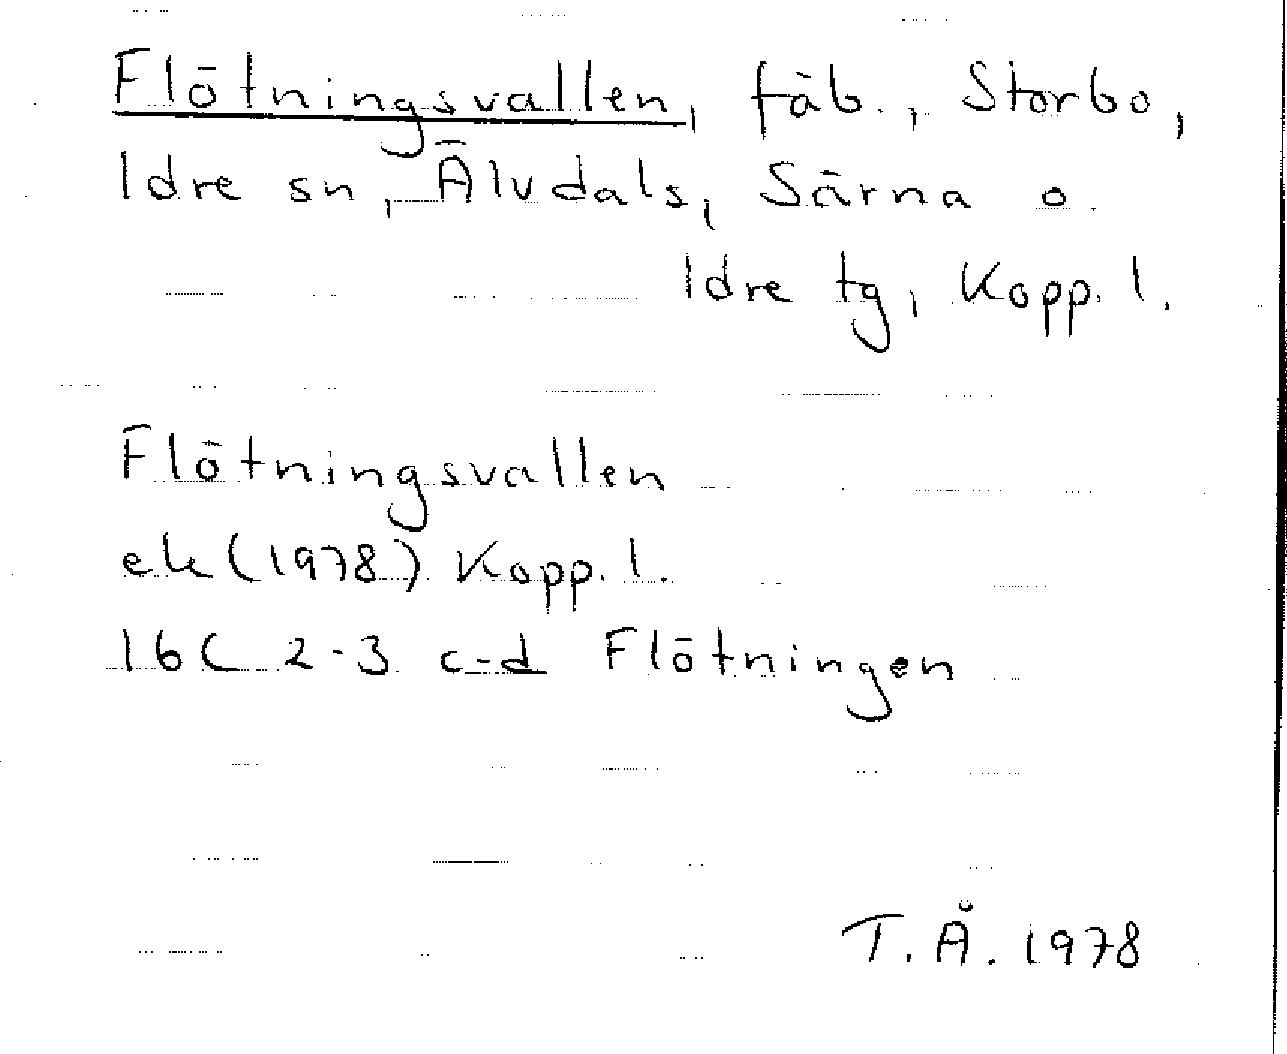 Flötningsvallen, fäb., Storbo,
Idre sn, Älvdals, Särna o.
Idre tg, Kopp. l.
Flötningsvallen
ek (1978) Kopp. l.
16C 2-3 c-d Flötningen
T.Å. 1978